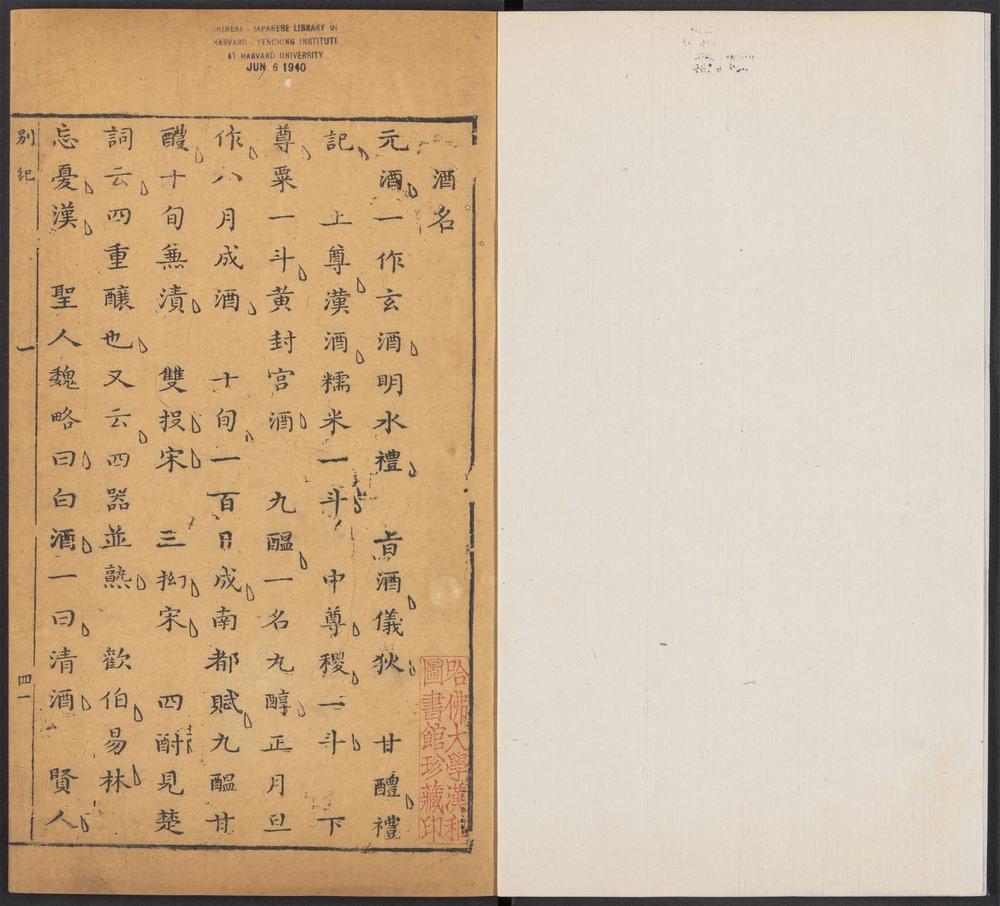 CHINESE - JAPANESE LIBRARY OF
HARVARD - YENCHING INSTITUTE
AT HARVARD UNIVERSITY
JUN 6 1940
酒名
元酒一作玄酒明水禮 酒儀狄 甘醴禮
記 上尊漢酒糯米一斗 中尊稷一斗 下
尊粟一斗黄封宮酒 九醞一名九醇正月旦
作八月成酒 十旬一百日成南都賦九醞甘
醴十旬兼漬 雙投宋 三拗宋 四酎見楚
詞云四重釀也又云四器並熟 歡伯易林
忘憂漢 聖人魏略曰白酒一曰清酒 賢人
别紀 一 四一
哈佛大學漢和
圖書館珍藏印